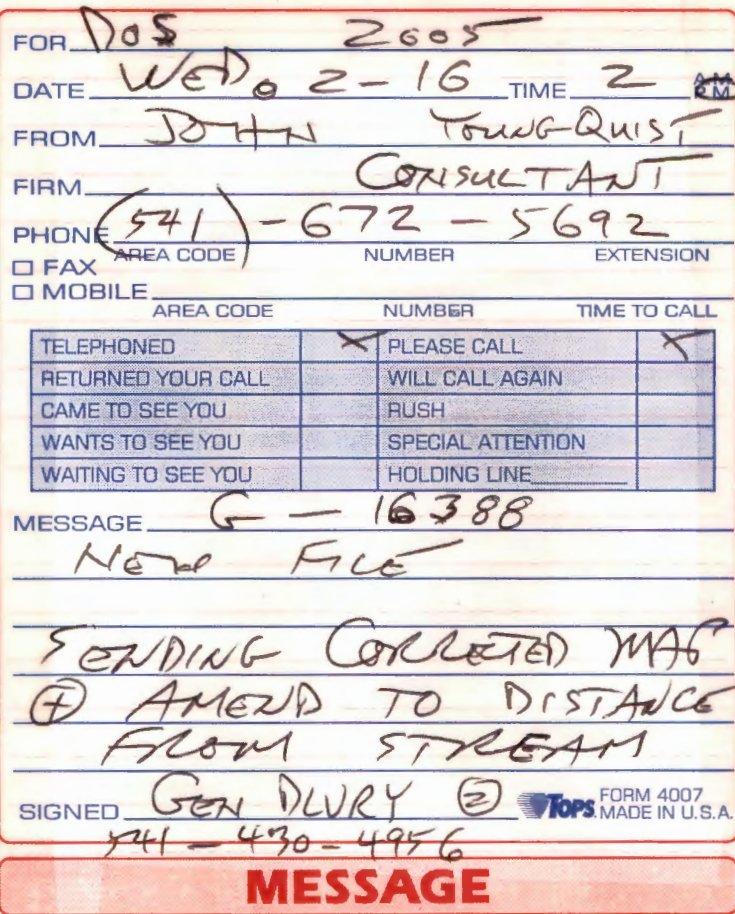 FOR DOS 2005
DATE WED. 2-16 TIME 2 A M P M
FROM JOHN YOUNG-QUIST
FIRM CONSULTANT
PHONE (541)-672-5692
AREA CODE NUMBER EXTENSION
FAX
MOBILE
AREA CODE NUMBER TIME TO CALL
TELEPHONED X PLEASE CALL X
RETURNED YOUR CALL WILL CALL AGAIN
CAME TO SEE YOU RUSH
WANTS TO SEE YOU SPECIAL ATTENTION
WAITING TO SEE YOU HOLDING LINE
MESSAGE G-16388
NEW FILE
SENDING CORRETED MAP
+ AMEND TO DISTANCE
FROM STREAM
SIGNED GEN 2 TOPS FORM 4007
MADE IN U.S.A.
541-430-4956
MESSAGE